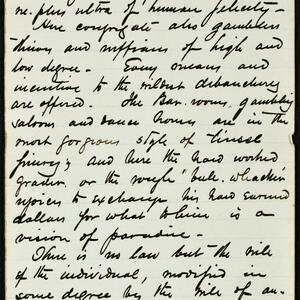 ne plus ultra of human felicity -
Here congregate also gamblers
thieves and ruffians of high and
low degree - Every means and
incentive to the wildest debauchery
are offered. The Bar-rooms, gambling
saloons and dance houses are in the
most gorgeous style of tinsel
finery; and here the hard worked
grader, or the rough "bull-whacker"
rejoices to exchange his hard earned
dollars for what to him is a
vision of paradise -
There is no law but the rule
of the individual, modified in
some degree by the rule of an-